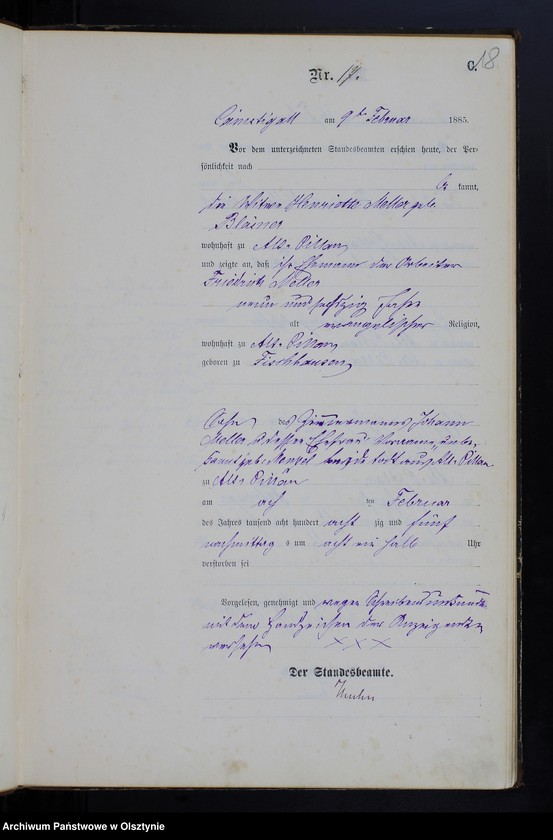 C. 18
Nr. 17.
Camstigall am 9ten Februar 1885.
Vor dem unterzeichneten Standesbeamten erschien heute, der Per-
sönlichkeit nach
be kannt,
die Witwe Henriette Moller geb.
Bläiner
wohnhaft zu Alt-Pillau
und zeigte an, daß ihr Ehemann der Arbeiter
Friedrich Moller
neun und sechszig Jahr
alt evangelischer Religion,
wohnhaft zu Alt-Pillau
geboren zu Fischhausen
Sohn des Zimmermanns Johann
Moller & dessen Ehefrau Vorname unbe-
kannt geb. Menzel beide todt aus Alt-Pillau
zu Alt-Pillau
am ach ten Februar
des Jahres tausend acht hundert acht zig und fünf
nachmittag s um acht ein halb Uhr
verstorben sei
Vorgelesen, genehmigt und wegen Schreibensunkunde
mit dem Handzeichen der Anzeigenden
versehen XXX
Der Standesbeamte.
Archiwum Państwowe w Olsztynie